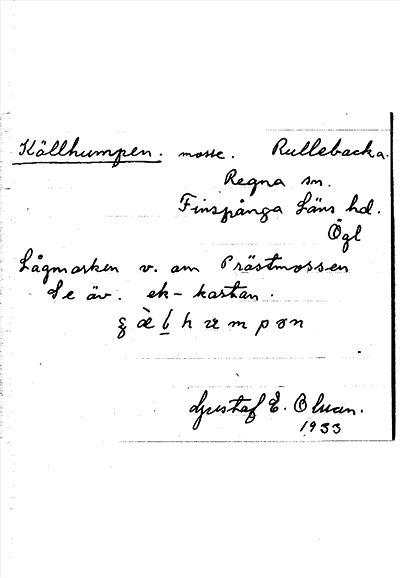 Källhumpen. mosse. Rullebacka.
Regna sn.
Finspånga Läns hd.
Ögl
Lågmarken v. om Prästmossen
Se äv. ek-kartan.
Gustaf E. Olsson.
1933